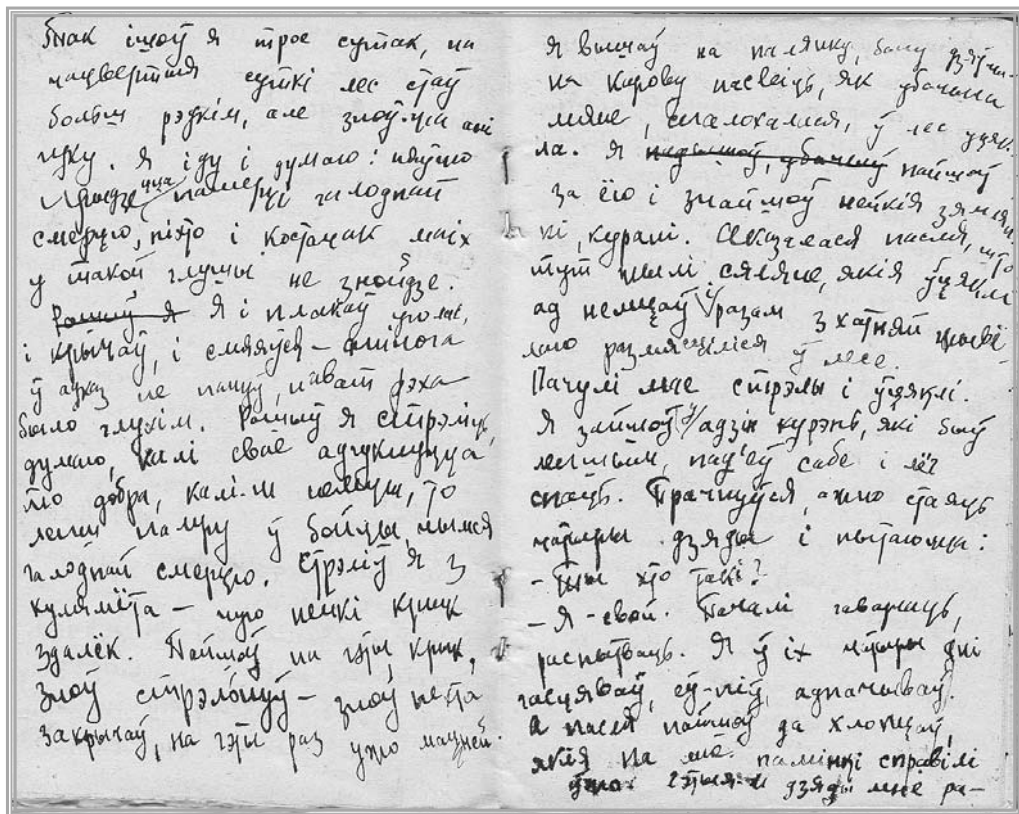 Гэтак ішоў я трое сутак, на
чацвертыя суткі лес стаў
больш рэдкім, але зноў жа ані
гуку. Я іду і думаю: няўжо
прыдзецца памерці галоднай
смерцю, ніхто і костачак маіх
у такой глушы не знойдзе.
Рашыў я Я і плакаў уголас,
і крычаў, і смяяўся – анічога
ў адказ не пачуў, нават рэха
было глухім. Рашыў я стрэліць,
думаю, калі свае адгукнуцца
то добра, калі-ж немцы, то
лепш памру ў бойцы, чымся
галоднай смерцю. Стрэліў я з
кулямёта – чую нейкі крык
здалёк. Пайшоў на гэты крык,
зноў стрэльнуў – зноў нехта
закрычаў, на гэты раз ужо мацней.
Я вышаў на палянку, бачу дзяўчы-
на карову пасвіць, як убачыла
мяне, спалохалася, ў лес уцяк-
ла. Я падышоў, убачыў пайшоў
за ёю і знайшоў нейкія зямлян-
кі, курані. Аказалася пасля, што
тут жылі сяляне, якія ўцяклі
ад немцаў і разам з хатняй жывё
лаю размясціліся ў лесе.
Пачулі мае стрэлы і ўцяклі.
Я зайшоў у адзін курэнь, які быў
лепшым, пад'еў сабе і лёг
спаць. Прачнуўся, ажно стаяць
чатыры дзяды і пытаюцца:
– Ты хто такі?
– Я – свой. Пачалі гаварыць,
распытваць. Я ў іх чатыры дні
гасцяваў, еў-піў, адпачываў.
А пасля пайшоў да хлопцаў,
якія па мне памінкі справілі
ўжо. Гэтыя-ж дзяды мне ра-